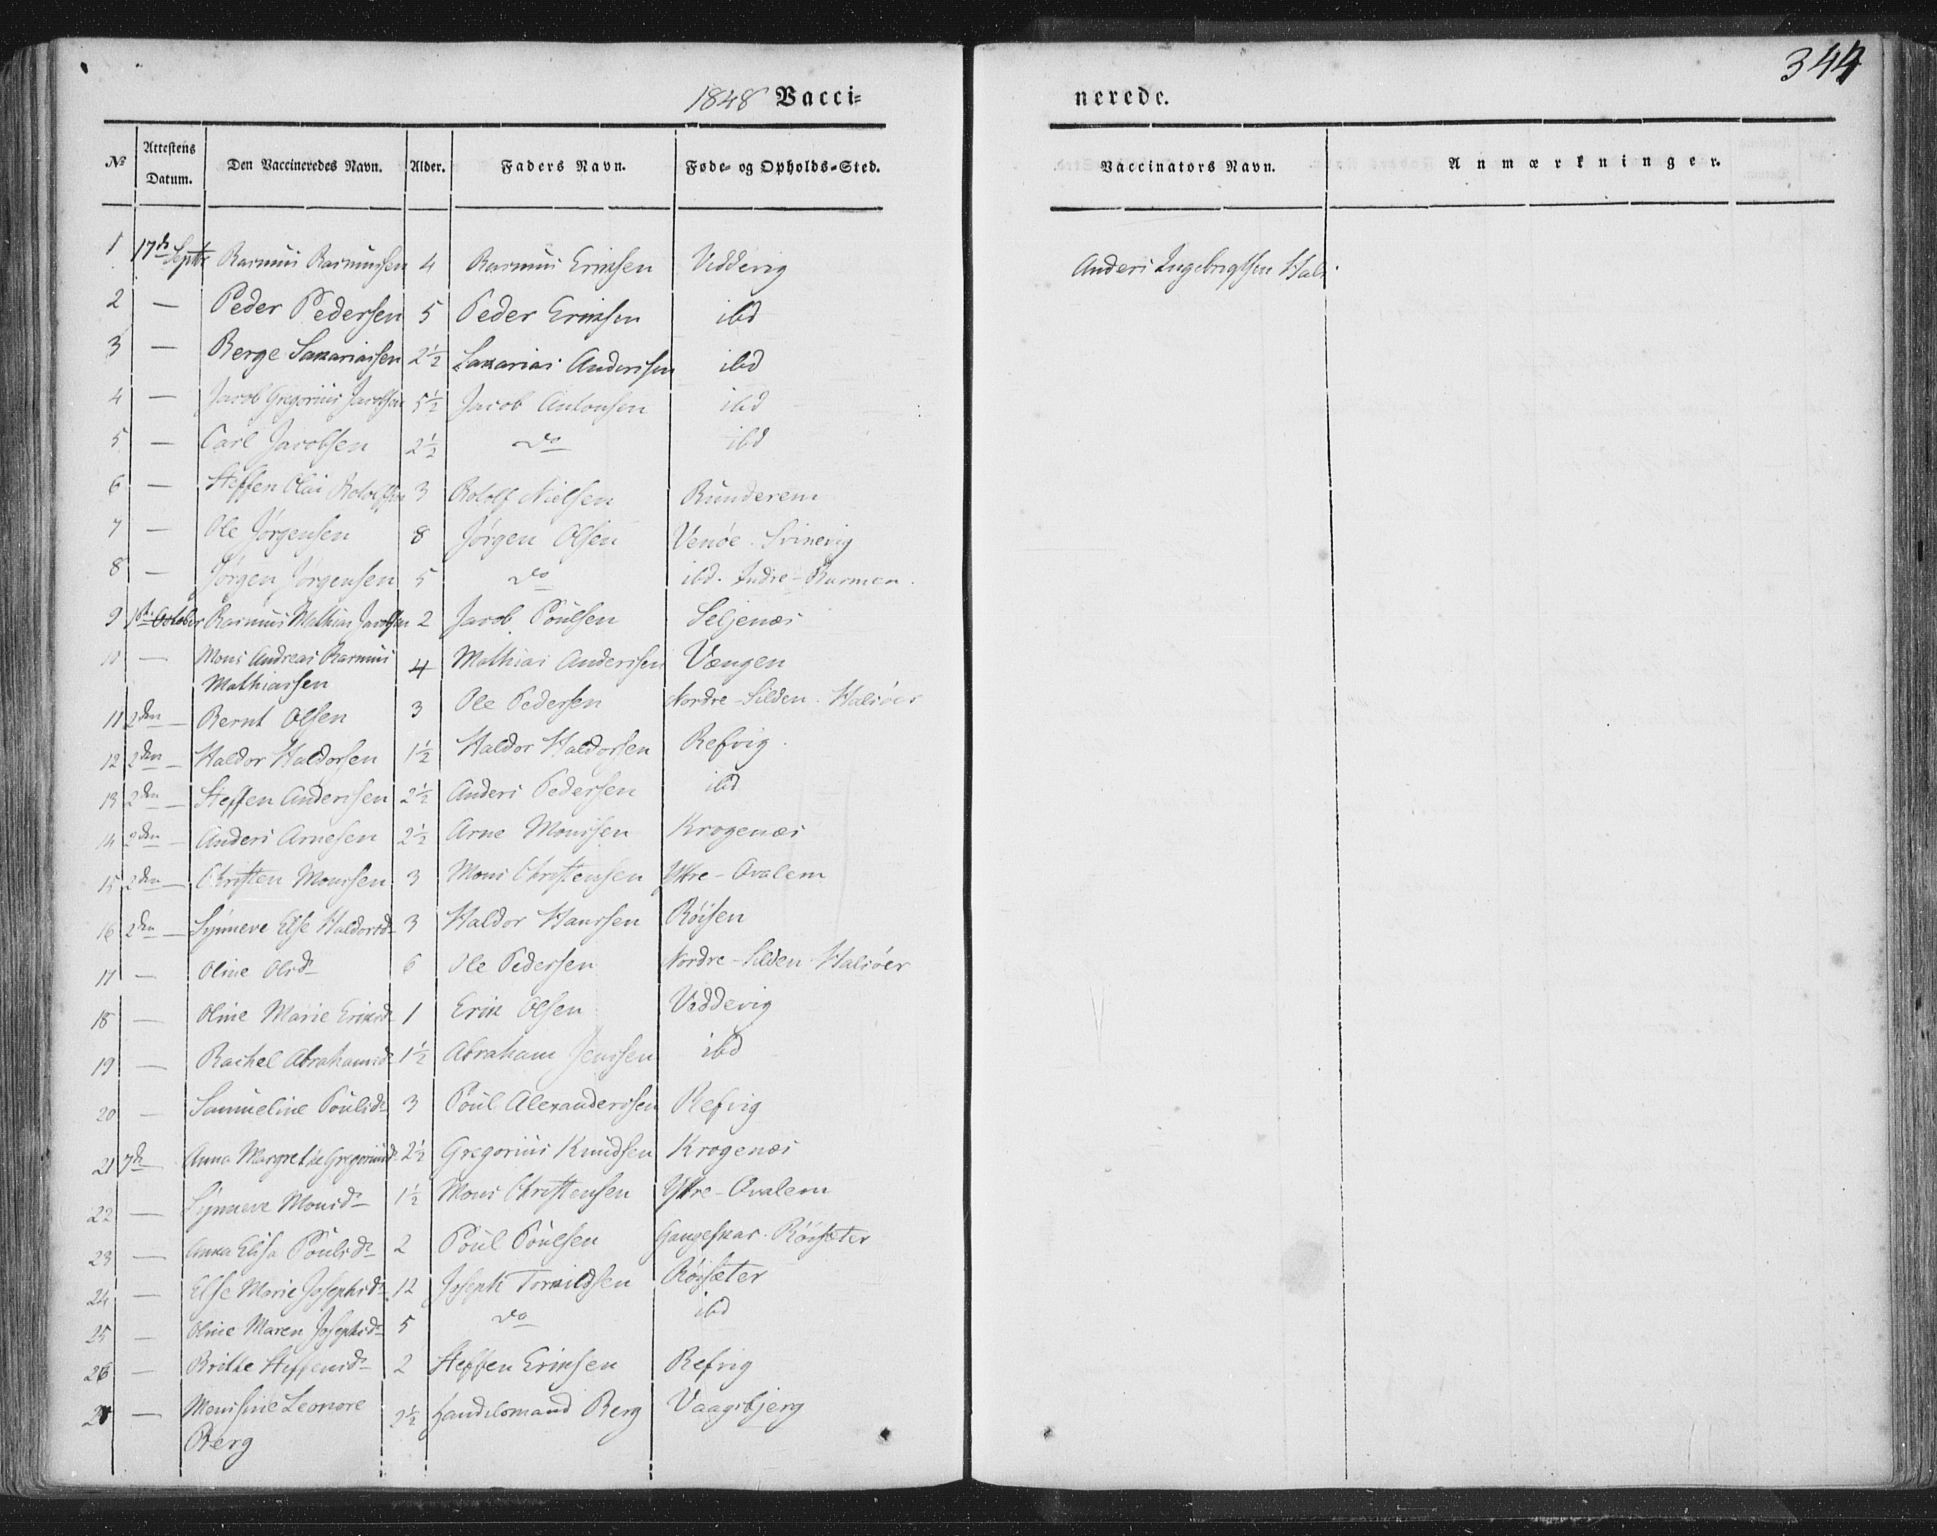 344
1848 Vacci=
nerede.
№ Attestens Datum. Den Vaccineredes Navn. Alder. Faders Navn. Føde- og Opholds-Sted. Vaccinators Navn. Anmærkninger.
1 17de Septbr Rasmus Rasmussen 4 Rasmus Eriksen Veddevig Anders Ingebrigtsen Hals.
2 — Peder Pedersen 5 Peder Eriksen ibd
3 — Berge Sakariassen 2½ Sakarias Anderssen ibd
4 — Jacob Gregorius Jacobsen 5½ Jacob Antonsen ibd
5 — Carl Jacobsen 2½ do ibd
6 — Steffen Olai Rolofsen 3 Rololf Nielsen Runderem
7 — Ole Jørgensen 8 Jørgen Olsen Venøe. Svinevig
8 — Jørgen Jørgensen 5 do ibd. Indre-Barmen.
9 1ste October Rasmus Mathias Jacobsen 2 Jacob Poulsen Seljenæs
10 — Mons Andreas Rasmus Mathiassen 4 Mathias Anderssen Vængen
11 2den — Bernt Olsen 3 Ole Pedersen Nordre-Silden. Halsøer
12 2den — Haldor Haldorsen 1½ Haldor Haldorsen Refvig.
13 2den — Steffen Anderssen 2½ Anders Pedersen ibd
14 2den — Anders Arnesen 2½ Arne Monssen Krogenæs
15 2den — Christen Monssen 3 Mons Christensen Yttre-Qvalem
16 2den — Synneve Else Haldorsd. 3 Haldor Hanssen Röisen
17 — Oline Olsd. 6 Ole Pedersen Nordre-Silden. Halsøer
18 — Oline Marie Eriksd. 1 Erik Olsen Veddevig
19 — Rachel Abrahamsd. 1½ Abraham Jenssen ibd
20 — Samueline Poulsd. 3 Poul Alexandersen Refvig
21 7de — Anna Margrethe Gregoriusd. 2½ Gregorius Knudsen Krogenæs
22 — Synneve Monsd. 1½ Mons Christensen Yttre-Qvalem
23 — Anna Elisa Poulsd. 2 Poul Poulsen Gangeskar. Röisæter
24 — Else Marie Josephsd. 12 Joseph Torkildsen Röisæter
25 — Oline Maren Josephsd. 5 do ibd
26 — Britte Steffensd. 2 Steffen Eriksen Refvig
27 — Monsine Leonore Berg 2½ Handelsmand Berg Vaagsbjerg